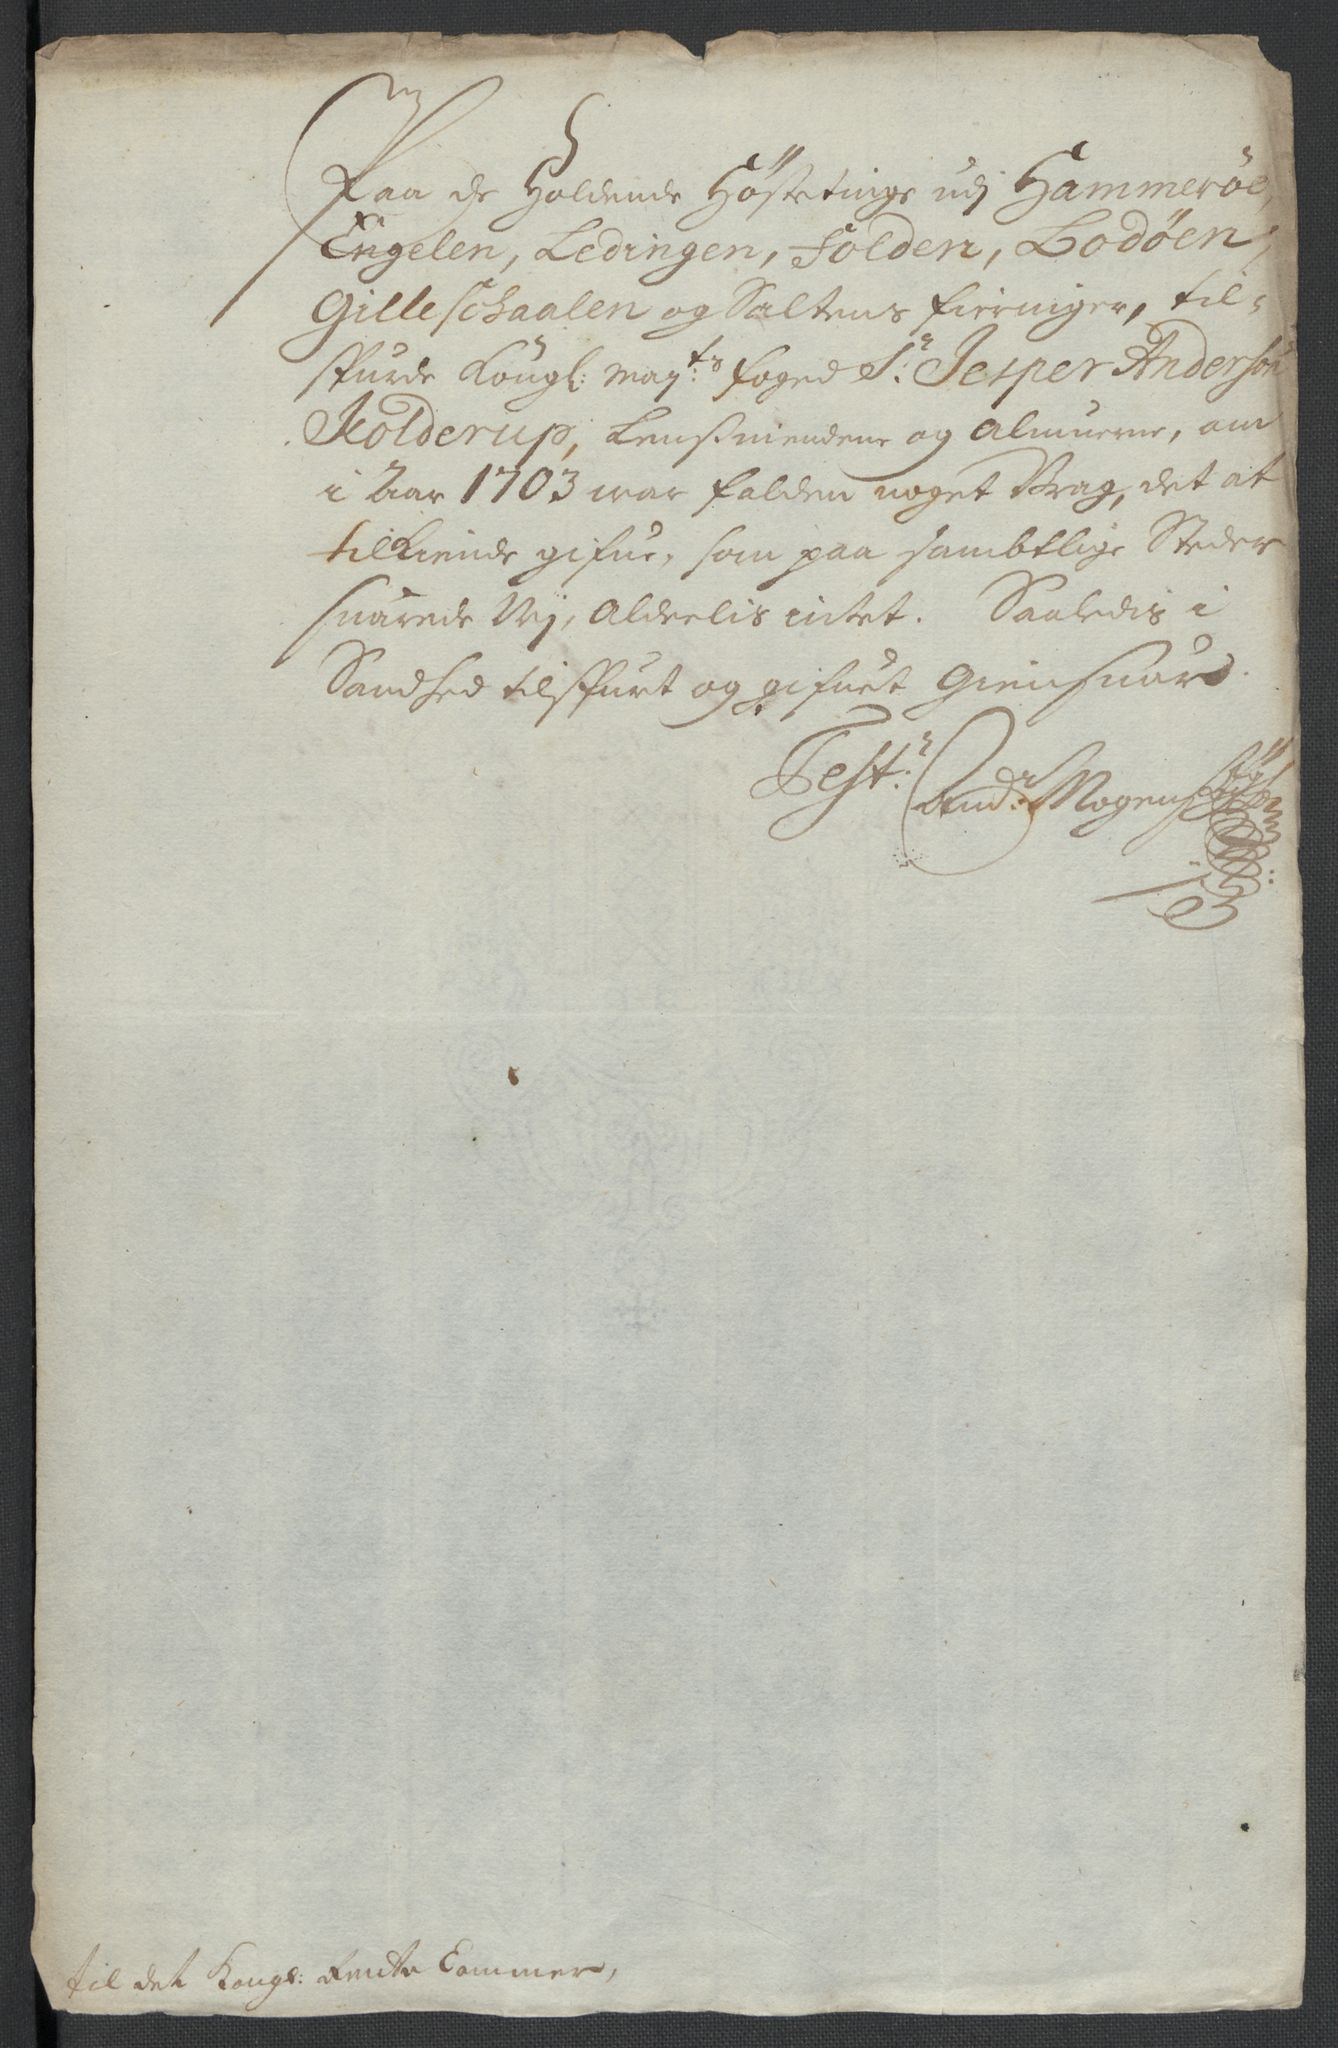 Paa de Holdende Höstetinge udj Hammeröe,
Engelen, Ledingen, Folden, Bodöen,
Gilleschaalen og Saltens fieringer, til-
spurde Kongl: May:ts foged Sr: Jesper Anderson
Kolderup, Lensmendene og Almuerne, om
i Aar 1703 war falden noget Vrag, det at
tilkiende gifue, som paa sambtlige Steder
suarede Nej, Aldeelis intet. Saaledis i
Sandhed tilspurt og gifuet Giensuar.
Test:r And:r Mogens
til det Kongl: Rente Cammer,